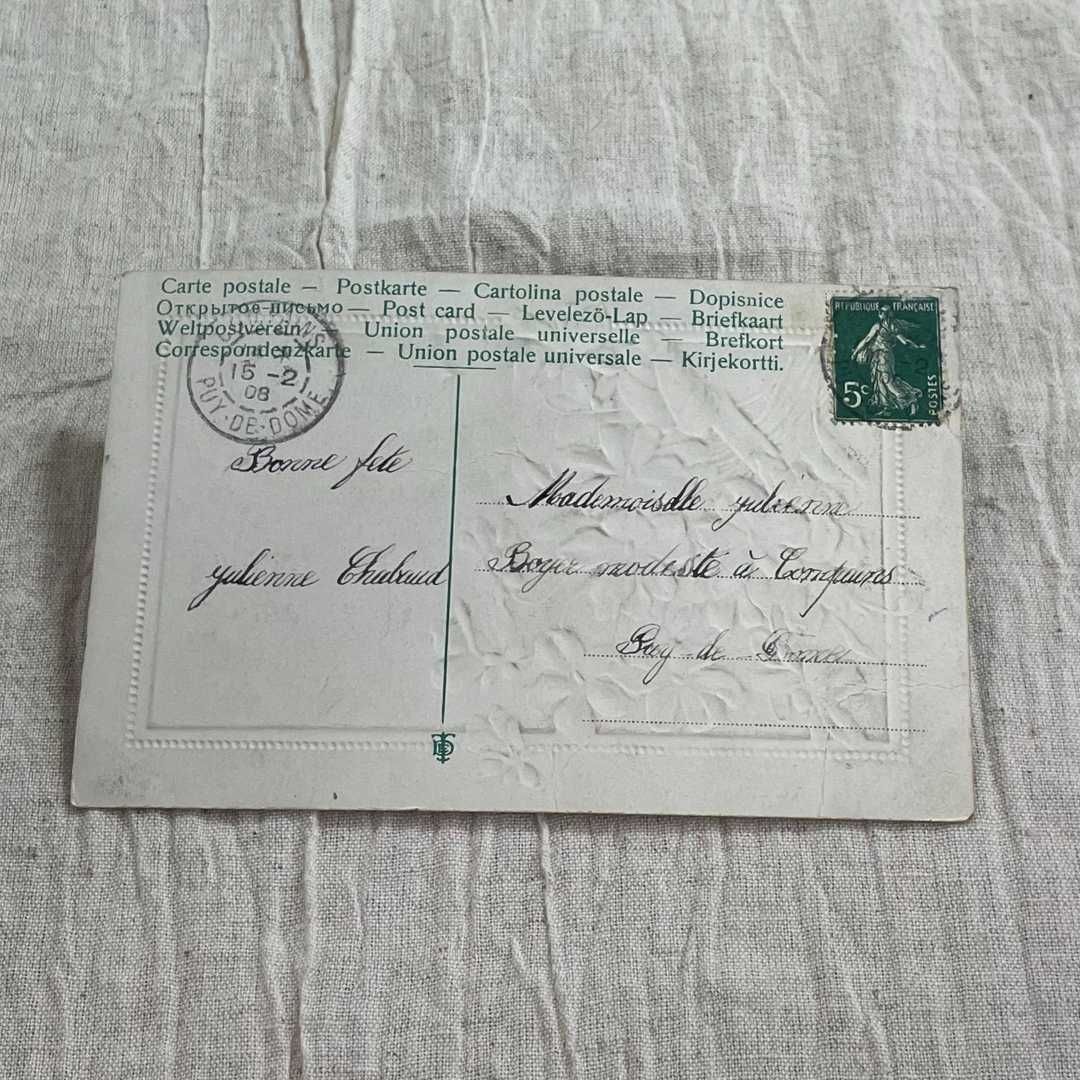 Carte postale — Postkarte — Cartolina postale — Dopisnice
Открытое письмо — Post card — Levelezö-Lap — Briefkaart
Weltpostverein — Union postale universelle — Brefkort
Correspondenzkarte — Union postale universale — Kirjekortti.
RÉPUBLIQUE FRANÇAISE
5c
POSTES
15 - 2
08
PUY-DE-DOME
Bonne fete
yulienne Thubaud
Mademoiselle yulienne
Boyer modeste à Compains
Puy-de-Dome